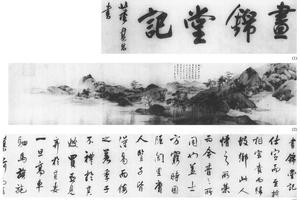 晝錦堂記
董其昌
書
(1)
(2)
晝錦堂記
仕宦而至將
相富貴而歸
故鄉此人
情之所榮
而今昔之所
同也蓋士
方窮時困
阨閭里庸
人孺子皆
得易而侮
之若季子
不禮於其
嫂買臣見
棄於其妻
一旦高車
駟馬旗旄